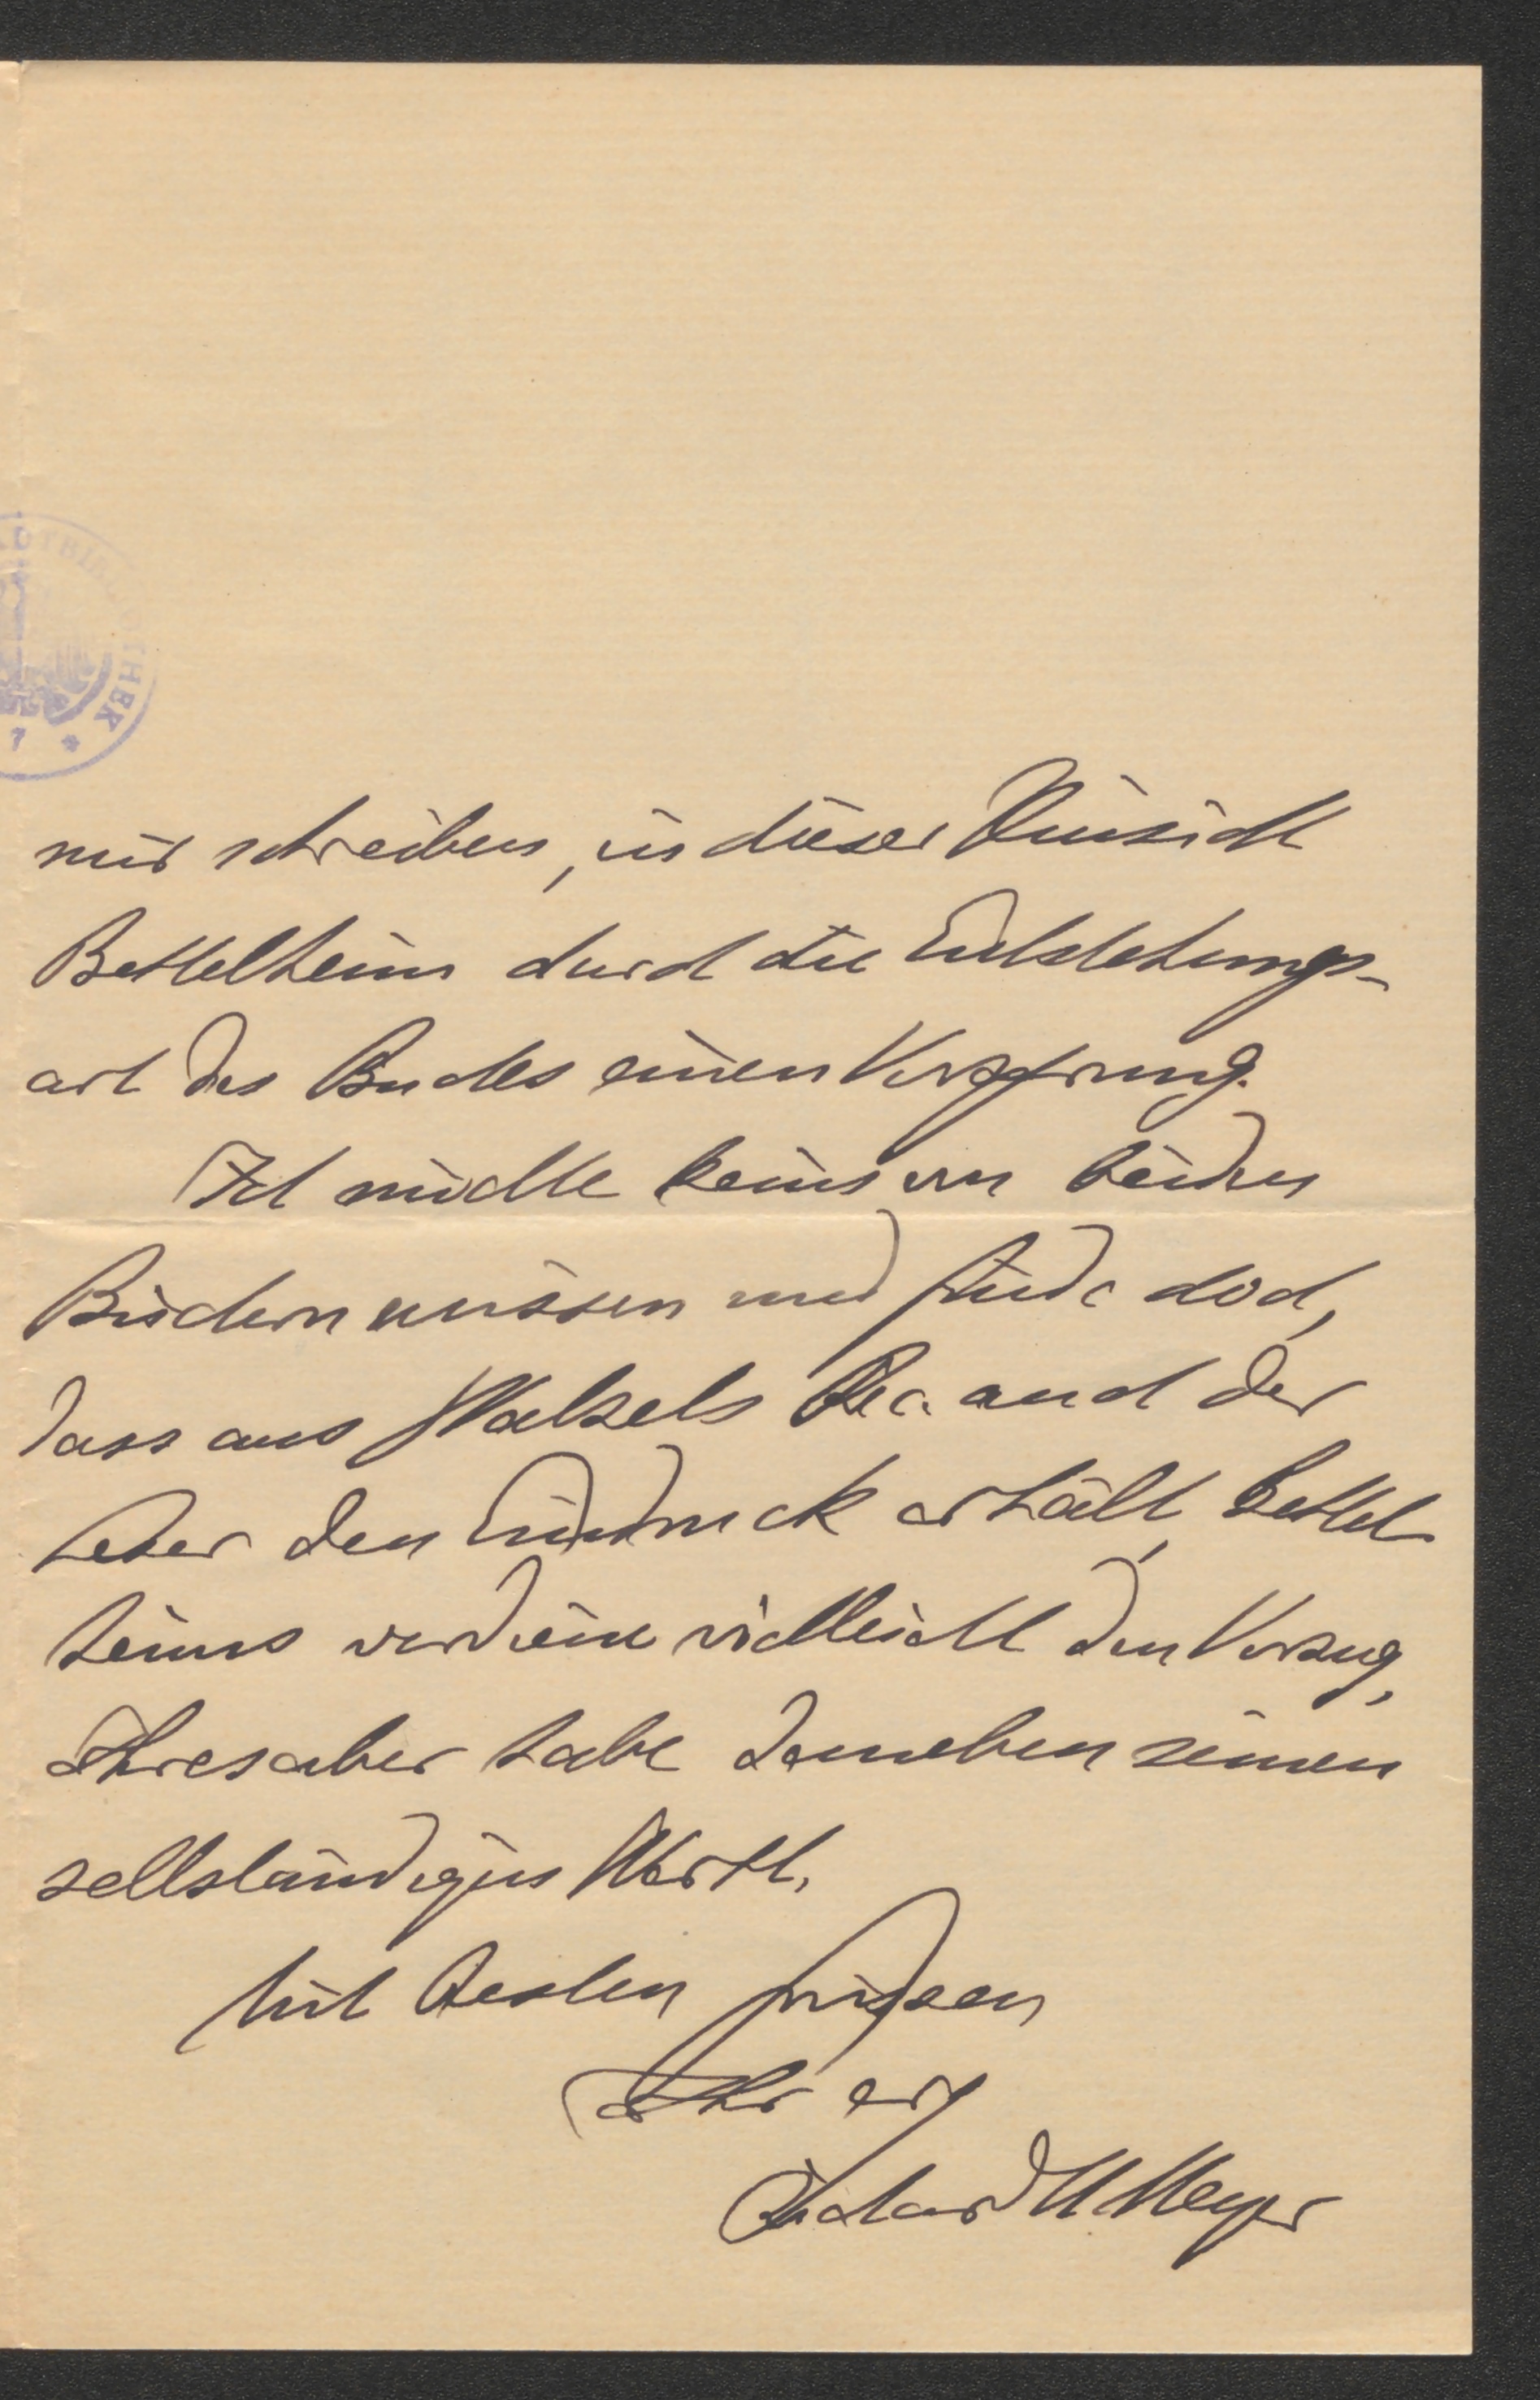 ADTBIBLIOTHEK
7 *
mir schreiben, in dieser Hinsicht
Bettelheim durch die Entstehungs-
art des Buches einen Vorsprung.
Ich möchte keins von beiden
Büchern missen und finde doch,
dass aus Walzels Rec. auch der
Leser den Eindruck erhält, Bettel-
heims verdiene vielleicht den Vorzug,
Ihres aber habe daneben seinen
selbständigen Werth.
Mit besten Grüßen
Ihr erg
Richard M Meyer